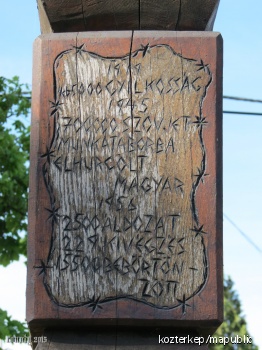 1919
65000 GYILKOSSÁG
1945
700000 SZOVJET
MUNKATÁBORBA
ELHURCOLT
MAGYAR
1956
2500 ÁLDOZAT
229 KIVÉGZÉS
15500 BEBÖRTÖN-
ZÖTT
kozterkep/mapublic